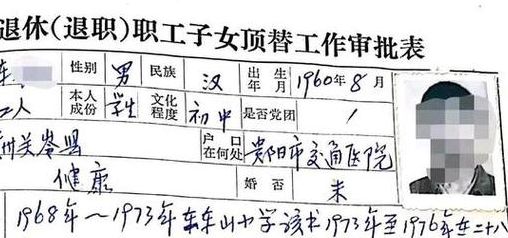 退休(退职)职工子女顶替工作审批表
性别 男 民族 汉 出生年月 1960年8月
工人 本人成份 学生 文化程度 初中 是否党团 /
州关岭县 户口在何处 贵阳市交通医院
健康 婚否 未
1968年～1973年在东山小学读书1973年至1976年在二十八